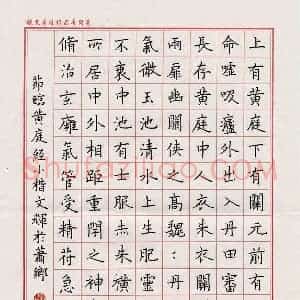 上有黄庭下有關元前有
命嘘吸廬外出入丹田審
長存黄庭中人衣朱衣關
兩扉幽闕俠之高魏:丹
氣微玉池清水上生肥靈
不衰中池有士服赤朱橫
所居中外相距重閉之神
脩治玄廱氣管受精符急
節臨黄庭經楷文輝於蕭鄉